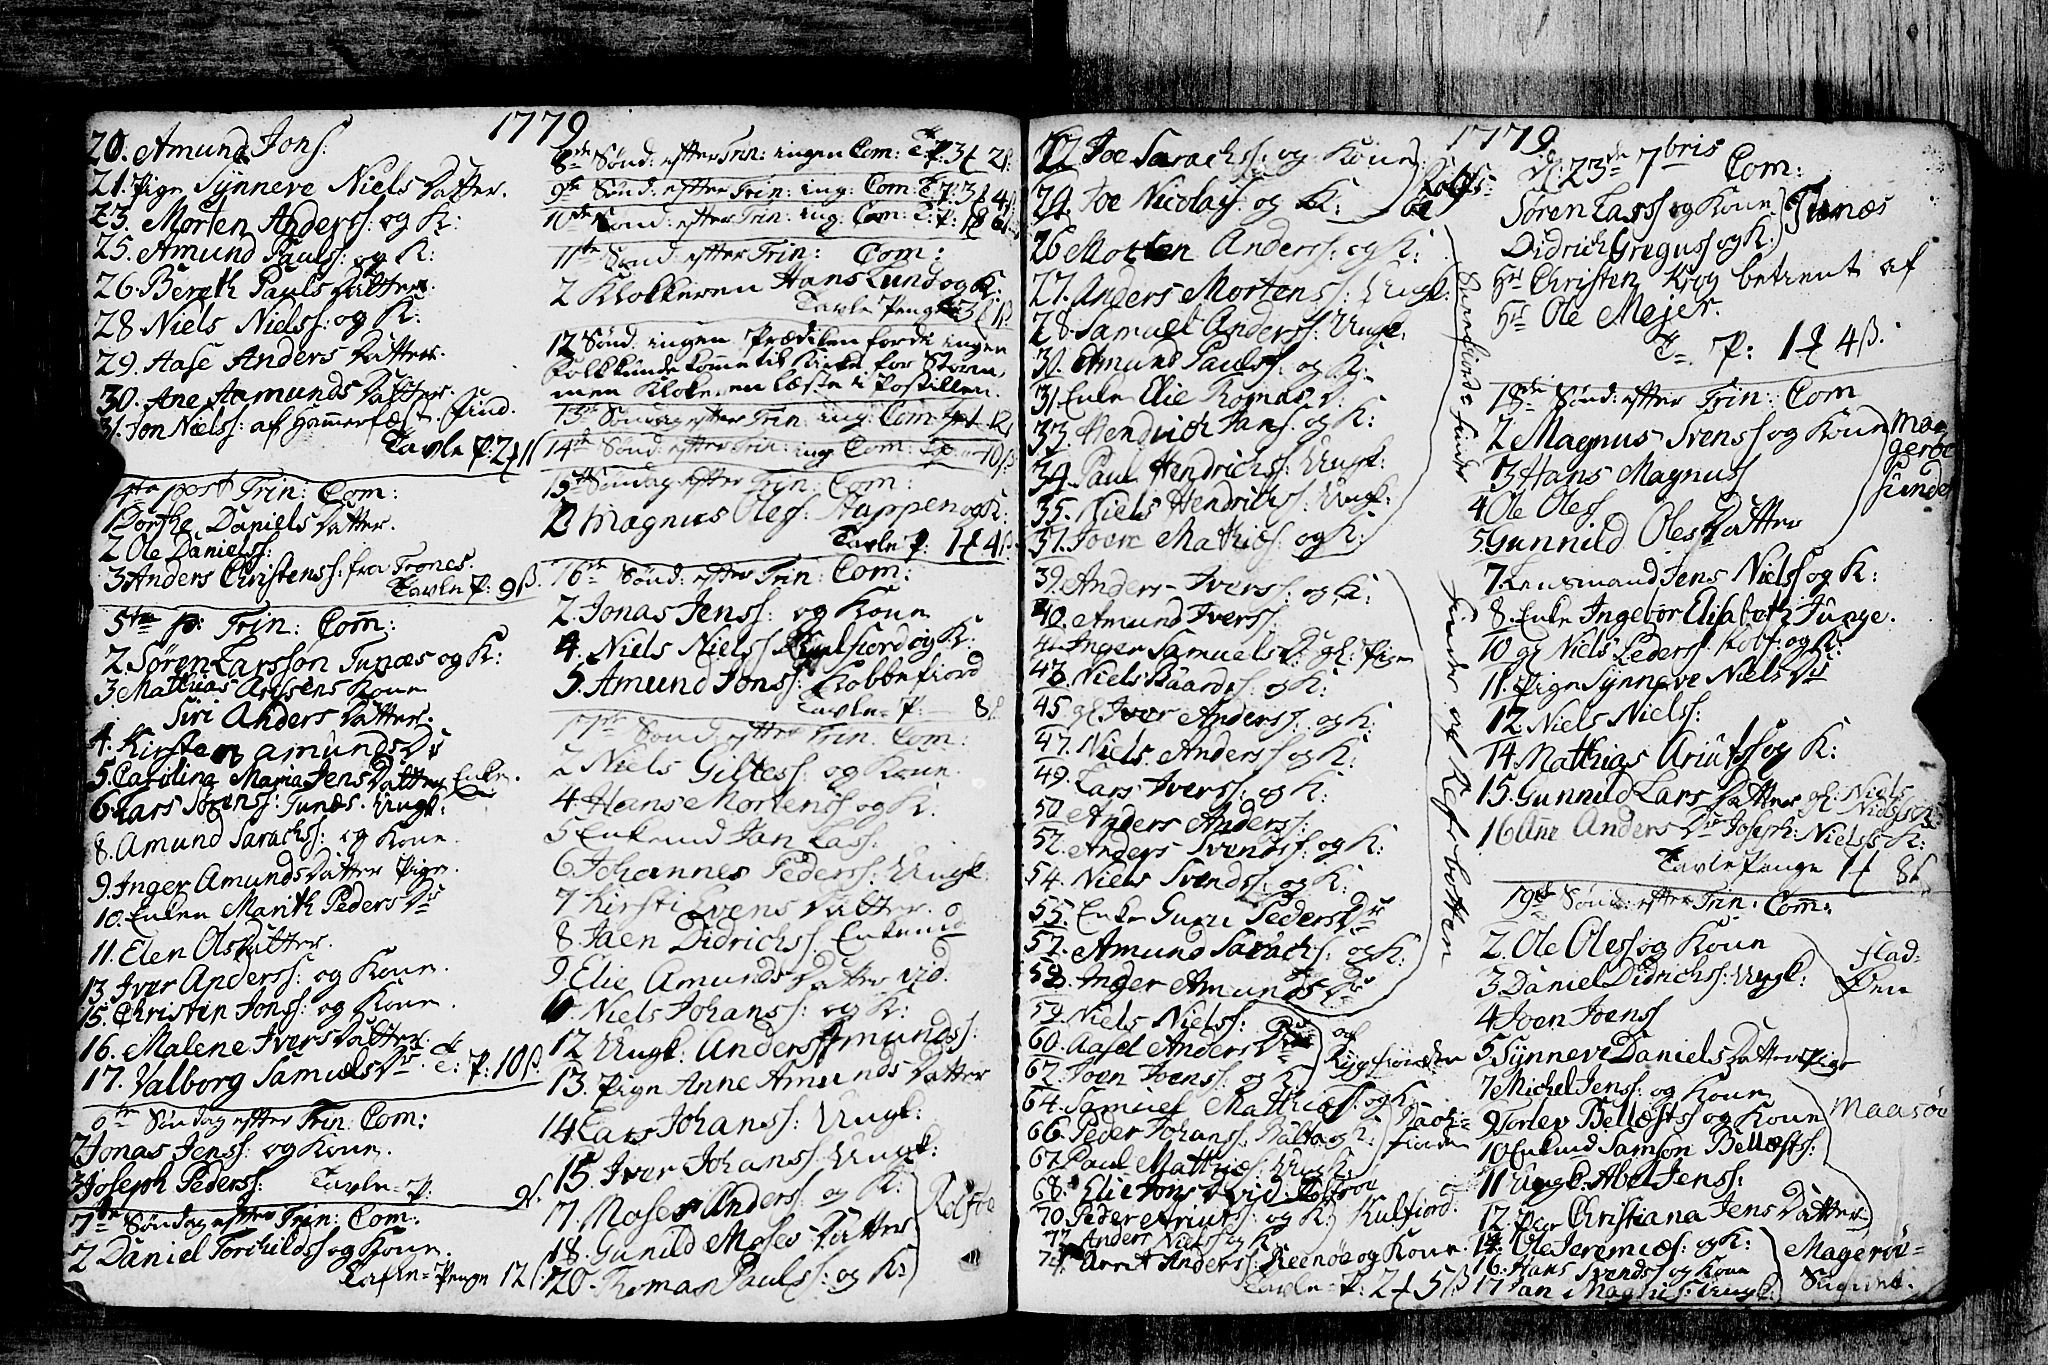 1779
20. Amund Jons:
21. Pige Synneve Niels Datter.
23. Morten Anderss: og K:
25. Amund Pauls: og K:
26. Bereth Pauls Datter.
28 Niels Nielss: og K:
29. Aase Anders Datter.
30. Ane Aamunds Datter.
31. Jon Nielss: af Hammerfæst Find.
Tavle P: 2
4te post Trin: Com:
1 Dorthe Daniels Datter.
2 Ole Danielss:
3 Anders Christenss: fra Trones.
Tavle P: 9 ß.
5te p: Trin: Com:
2. Søren Larsson Tunæs og K:
3 Matthias Kone
Siri Anders Datter.
4. Kirsten Amunds Dr
5. Carolina Maria Jens Datter Enke.
6 Lars Sørenss: Tunæs. Ungk:
8. Amund Sarachs: og Kone.
9. Inger Amunds Datter Pige.
10. Enken Marith Peders Dr
11. Elen Ols Datter.
13 Iver Anderss: og Kone.
15. Christen Jonss: og Kone.
16. Malene Ivers Datter.
17. Valborg Samuels Dr T: P: 10 ß
6te Søndag efter Trin: Com:
2 Jonas Jenss: og Kone.
3 Joseph Pederss: Tavle-P: 9 ß.
7de Søndag efter Trin: Com:
2 Daniel Torchildss og Kone.
Tavle-Penge 12 ß.
8de Sønd: efter Trin: ingen Com: T P: 3 2 ß
9de Sønd: efter Trin: ing: Com: T P: 3 4 ß
10de Sønd: efter Trin: ing: Com: T: P:
11te Sønd: efter Trin: Com:
2 Klokkeren Hans Lund og K:
Tavle Penge
12 Sønd: ingen Prædiken fordi ingen
Folk kunde komme til Kirke for Storm,
men Klokeren læste i Postillen.
13de Søndag efter Trin: ing: Com:
14de Sønd: efter Trin: ing Com: 10 ß
15de Søndag efter Trin: Com:
2 Magnus Oless: Stappen og K:
Tavle P: 1 4 ß
16te Sønd: efter Trin: Com:
2. Jonas Jenss: og Kone
4. Niels Nielss Kulfiord og K:
5. Amund Jonss: Kobbefiord
Tavle-P: 8 ß
17de Sønd: efter Trin: Com:
2 Niels Giltess: og Kone.
4 Hans Mortenss og K.
5 Enkemd Jan Lass:
6 Johannes Pederss: Ungk:
7 Kirsti Evens Datter.
8 Jaen Didrichss. Enkemd
9. Elie Amunds Datter vid.
11 Niels Johanss: og K:
12 Ungk: Anders Amundss:
13. Pige Anne Amunds Datter
14 Lars Johanss: Ungk:
15. Iver Johanss: Ungk:
17. Moses Anderss: og K:
18. Gunild Moses Datter
20. Thomas Paulss: og K:
Rolfsøe
1779
22 Joe Sarachss: og Kone
24. Joe Nicolaiss: og K:
Rolfs-
øe
26 Morten Anderss: og K:
27. Anders Mortenss: Ungk:
28. Samuel Anderss: Ungk.
30. Amund Paulss: og K:
31 Enke Elie Thomas D.
33. Hendrich Hans: og K:
34. Paul Hendrichs: Ungk:
35. Niels Hendrichs: Ungk:
37. Joen Mathis: og K:
39. Anders Iverss: og K:
40. Amund Iverss.
41. Inger Samuels D: gl: Pige
43. Niels Baardss: og K:
45. gl Iver Anderss: og K:
47. Niels Anderss og K:
49. Lars Iverss: og K:
50 Anders Anderss:
52. Anders Svendss: og K:
54. Niels Svendss: og K:
55. Enke Guru Peders Dr
57. Amund Sarachs: og K:
58. Inger Amunds Dr
Finder af Refsbotten
59. Niels Nielss:
60. Aasel Anders Dr
62. Joen Joenss: og K:
af
Ryggfiorden
64. Samuel Matthiæs: og K:
66. Peder Johanss. Balta og K:
67. Paul Matthiæs: Ungk:
68. Elie Jons D vid.
70. Peder Ariuts: og K: Kulfiord.
72. Anders Nielss og K:
74. Arent Anderss: Reenøe og Kone.
Tavle-P: 2 5 ß
1779
d: 23de 7bris Com:
Søren Larss og Kone
Didrich Greguss og K:
Tunæs
Hr Christen Krog betient af
Hr Ole Mejer.
T: P: 1 4 ß.
18de Sønd: efter Trin: Com
2 Magnus Svenss og Kone
3 Hans Magnuss
4 Ole Oless
5. Gunnild Oles Datter
Ma-
gerøe
Sundet
7. Lensmand Jens Nielss og K:
8. Enke Ingebor Elisabeth Junge.
10 gl Niels Pederss. Kobf: og K:
11. Pige Synneve Niels Dr
12. Niels Nielss:
14. Matthias Ariutss og K:
15. Gunnild Lars Datter gl: Niels
16 Ane Anders Dr Joseph: Nielss K:
Tavle Penge 1 8 ß
19de Sønd: efter Trin: Com:
2. Ole Oless og Kone
3 Daniel Didrichss: Ungk:
4 Joen Joenss
5. Synneve Daniels Datter Pige
7 Michel Jenss: og Kone
9 Torlev Bellestss og Kone
10 Enkemd Samson Bellæstss:
11 Ungk: Abel Jenss:
12. Christiana Jens Datter
Maasøe
14. Ole Jeremiæs: og K:
16. Hans Svendss og Kone
17 Jan Ungk:
Magerøe-
Sundet.